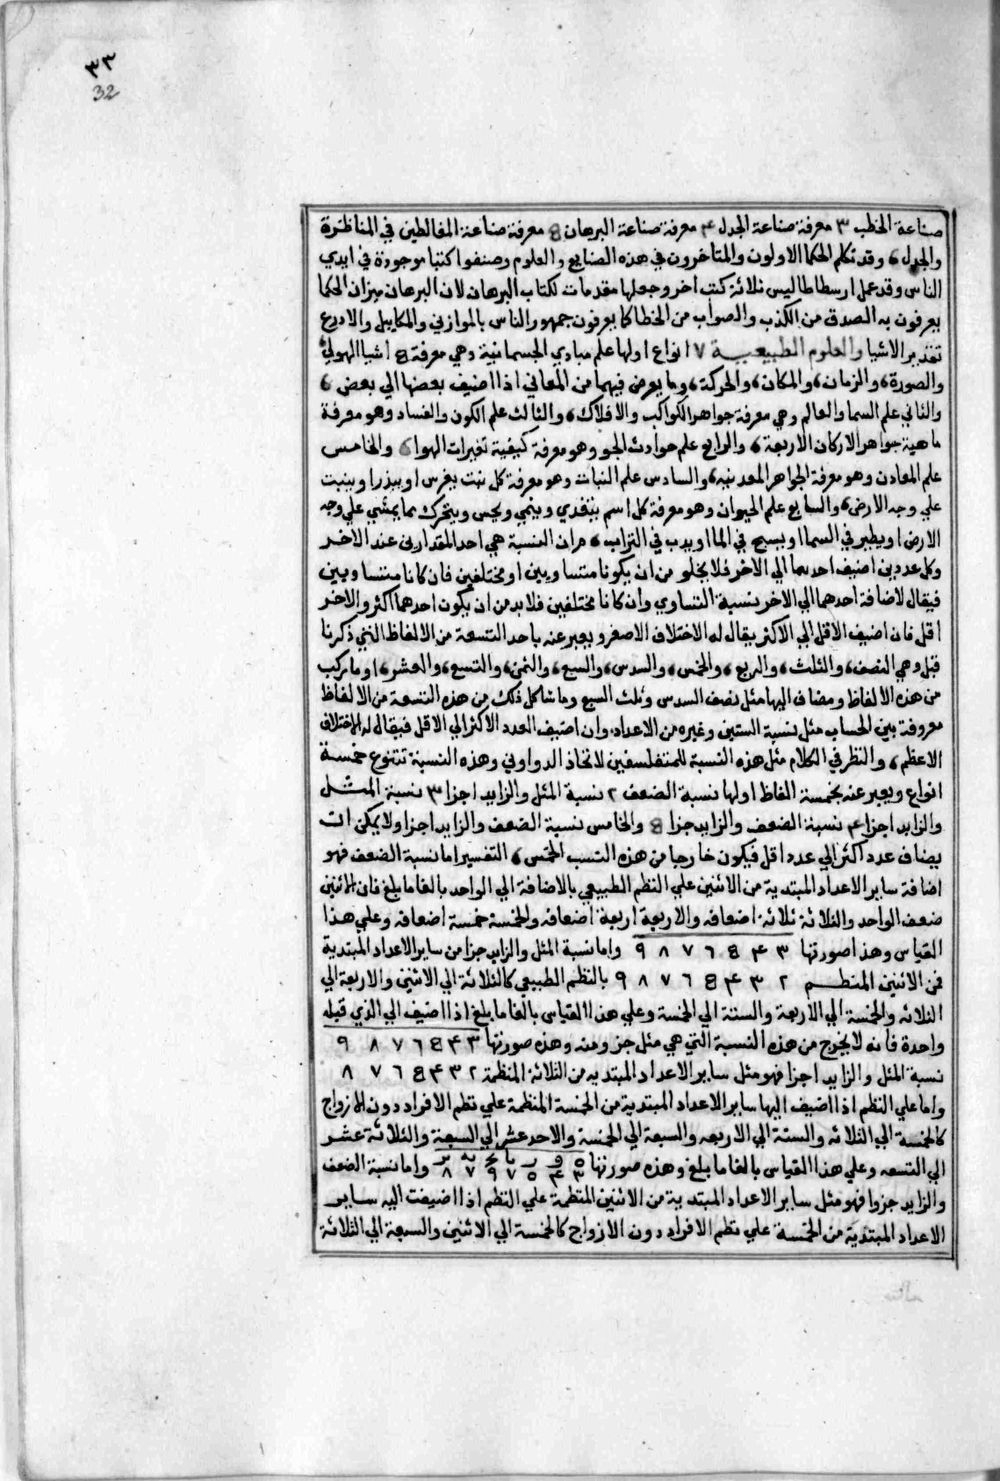 ٣٣
32
صناعة الخطب ٣ معرفة صناعة الجدل ۴ معرفة صناعة البرهان 8 معرفة صناعة المغالطين في المناظرة
والجدل، وقد تكلم الحكما الاولون والمتاخرون في هذه الصنايع والعلوم وصنفوا كتبا موجودة في ايدي
الناس وقد عمل ارسطاطاليس ثلاثة كتب اخر وجعلها مقدمات لكتاب البرهان لان البرهان ميزان الحكما
يعرفون به الصدق من الكذب والصواب من الخطا كما يعرفون جمهور الناس بالموازين والمكاييل والادرع
تقدير الاشيا والعلوم الطبيعية ٧ انواع اولها علم مبادي الجسمانية وهي معرفة 8 اشيا الهولي
والصورة، والزمان، والمكان، والحركة، وما يعرض فيهما من المعاني اذا اضيف بعضها الي بعض،
والثاني علم السما والعالم وهي معرفة جواهر الكواكب والافلاك، والثالث علم الكون والفساد وهو معرفة
ماهية جواهر الاركان الاربعة، والرابع علم حوادث الجو وهو معرفة كيفية تغيرات الهوا، والخامس
علم المعادن وهو معرفة الجواهر المعدنيه، والسادس علم النبات وهو معرفة كل نبت يغرس او يبذرا وينبت
علي وجه الارض، والسابع علم الحيوان وهو معرفة كل اسم يتغدي وينمي ويحس ويتحرك مما يمشي علي وجه
الارض او يطير في السما او يسبح في الما او يدب في التراب، مران النسبة هي احد المقدارين عند الاخر
وكل عددين اضيف احدهما الي الاخر فلا يخلو من ان يكونا متساويين او مختلفين فان كانا متساويين
فيقال لاضافة احدهما الي الاخر نسبة التساوي وان كانا مختلفين فلا بد من ان يكون احدهما اكثر والاخر
اقل فان اضيف الاقل الي الاكثر يقال له الاختلاف الاصغر ويعبر عنه باحد التسعة من الالفاظ التي ذكرنا
قبل وهي النصف، والثلث، والربع، والخمس، والسدس، والسبع، والثمن، والتسع، والعشر، او ما ركب
من هذه الالفاظ ومضاف اليها مثل نصف السدس وثلث السبع وما شاكل ذلك من هذه التسعة من الالفاظ
معروفة بين الحساب مثل نسبة الستين وغيره من الاعداد، وان اضيف العدد الاكثر الي الاقل فيقال له الاختلاف
الاعظم، والنظر في الكلام مثل هذه النسبة للمتفلسفين لاتخاذ الدواوين وهذه النسبة تتنوع خمسة
انواع ويعبر عنه بخمسة الفاظ اولها نسبة الضعف ٢ نسبة المثل والزايد اجزا ٣ نسبة المثل
والزايد اجزا ۴ نسبة الضعف والزايد جزا 8 والخامس نسبة الضعف والزايد اجزا ولا يمكن ان
يضاف عدد اكثر الي عدد اقل فيكون خارجا من هذه النسب الخمس، التفسير اما نسبة الضعف فهو
اضافة ساير الاعداد المبتدية من الاثنين علي النظم الطبيعي بالاضافة الي الواحد بالغا ما بلغ فان الاثنين
ضعف الواحد والثلاثة ثلاثة اضعافه والاربعة اربعة اضعافه والخمسة خمسة اضعافه وعلي هذا
القياس وهذا صورتها ٣ ۴ 8 ٦ ٧ ٨ ٩ واما نسبة المثل والزايد جزا من ساير الاعداد المبتدية
فمن الاثنين المنتظم ٢ ٣ ۴ 8 ٦ ٧ ٨ ٩ بالنظم الطبيعي كالثلاثة الي الاثنين والاربعة الي
الثلاثه والخمسة الي الاربعة والستة الي الخمسة وعلي هذا القياس بالغا ما بلغ اذا اضيف الي الذي قبله
واحدة فانه لا يخرج من هذه النسبة التي هي مثل جزو منه وهذه صورتها ٣ ۴ 8 ٦ ٧ ٨ ٩
نسبة المثل والزايد اجزا فهو مثل ساير الاعداد المبتديه من الثلاثة المنظمة ٢ ٣ ۴ 8 ٦ ٧ ٨
واما علي النظم اذا اضيف اليها ساير الاعداد المبتدية من الخمسة المنظمة علي نظم الافراد دون الازواج
كالخمسة الي الثلاثه والستة الي الاربعه والسبعة الي الخمسة والاحد عشر الي السبعة والثلاثة عشر
الي التسعه وعلي هذا القياس بالغا ما بلغ وهذه صورتها واما نسبة الضعف
والزايد جزوا فهو مثل ساير الاعداد المبتدية من الاثنين المنتظمة علي النظم اذا اضيفت اليه ساير
الاعداد المبتدية من الخمسة علي نظم الافراد دون الازواج كالخمسة الي الاثنين والسبعة الي الثلاثة